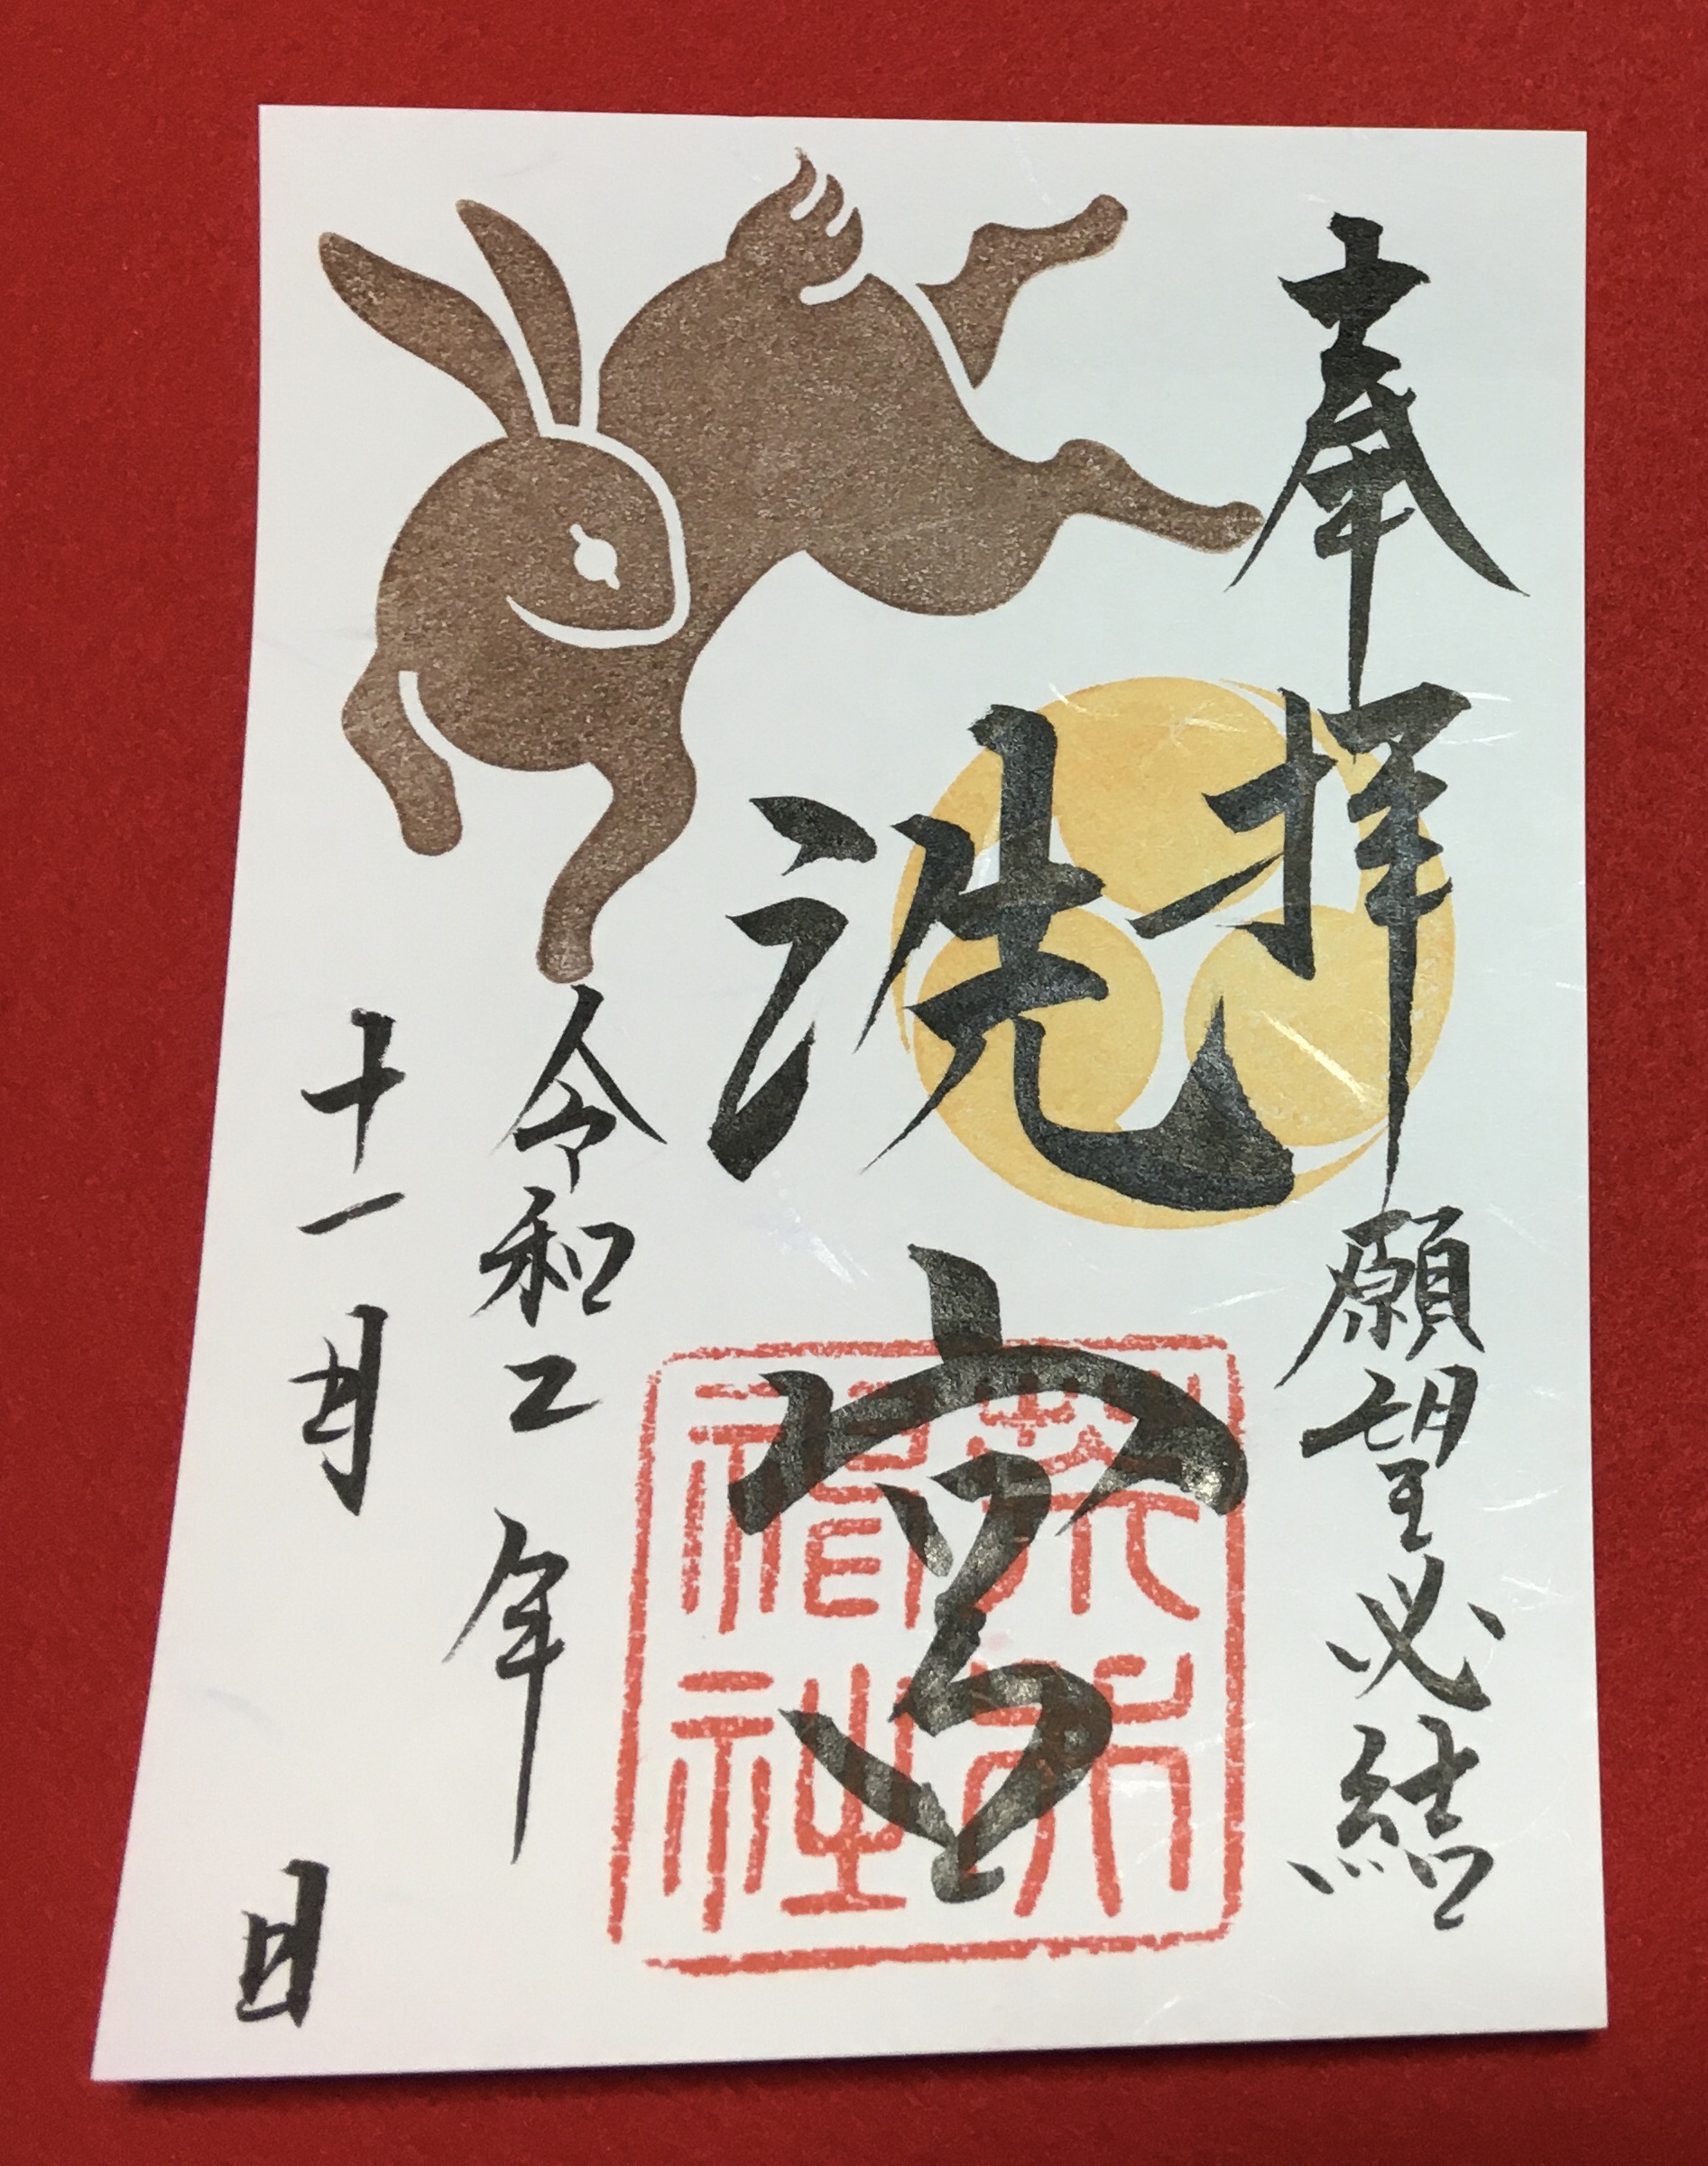 奉拝 願望必結
洗宮
令和二年
十一月 日